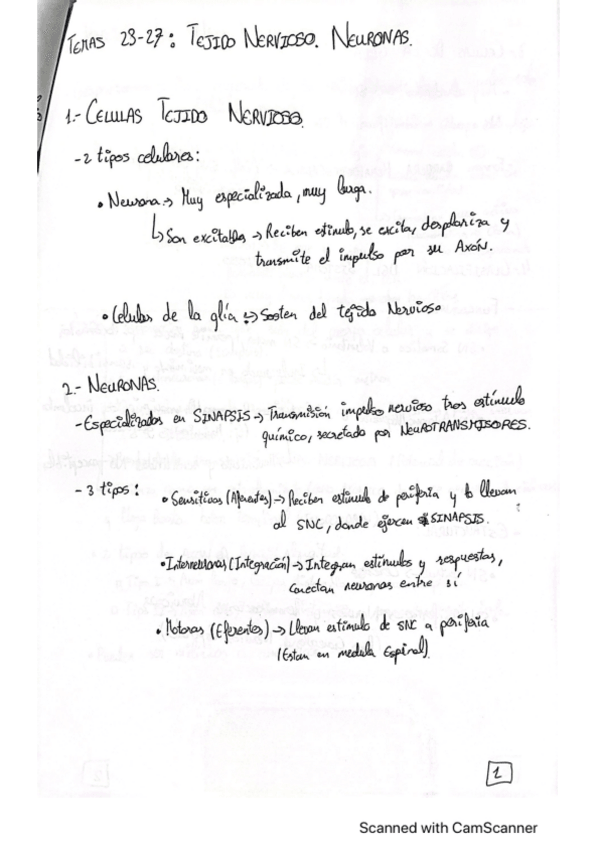 TEMAS 23-27: TEJIDO NERVIOSO. NEURONAS.
1.- CELULAS TEJIDO NERVIOSO.
- 2 tipos celulares:
• Neurona → Muy especializada, muy larga.
↳ Son excitables → Reciben estimulo, se excita, despolariza y
transmite el impulso por su Axón.
• Celulas de la glía → Sosten del tejido Nervioso
2.- NEURONAS.
- Especializadas en SINAPSIS → Transmisión impulso nervioso tras estímulo
químico, secretado por NEUROTRANSMISORES.
- 3 tipos: • Sensitivas (Aferentes) → Reciben estimulo de periferia y lo llevan
al SNC, donde ejercen SINAPSIS.
• Interneuronas (Integración) → Integran estímulos y respuestas,
conectan neuronas entre sí
• Motoras (Eferentes) → Llevan estimulo de SNC a periferia
(Estan en medula Espinal).
1
Scanned with CamScanner